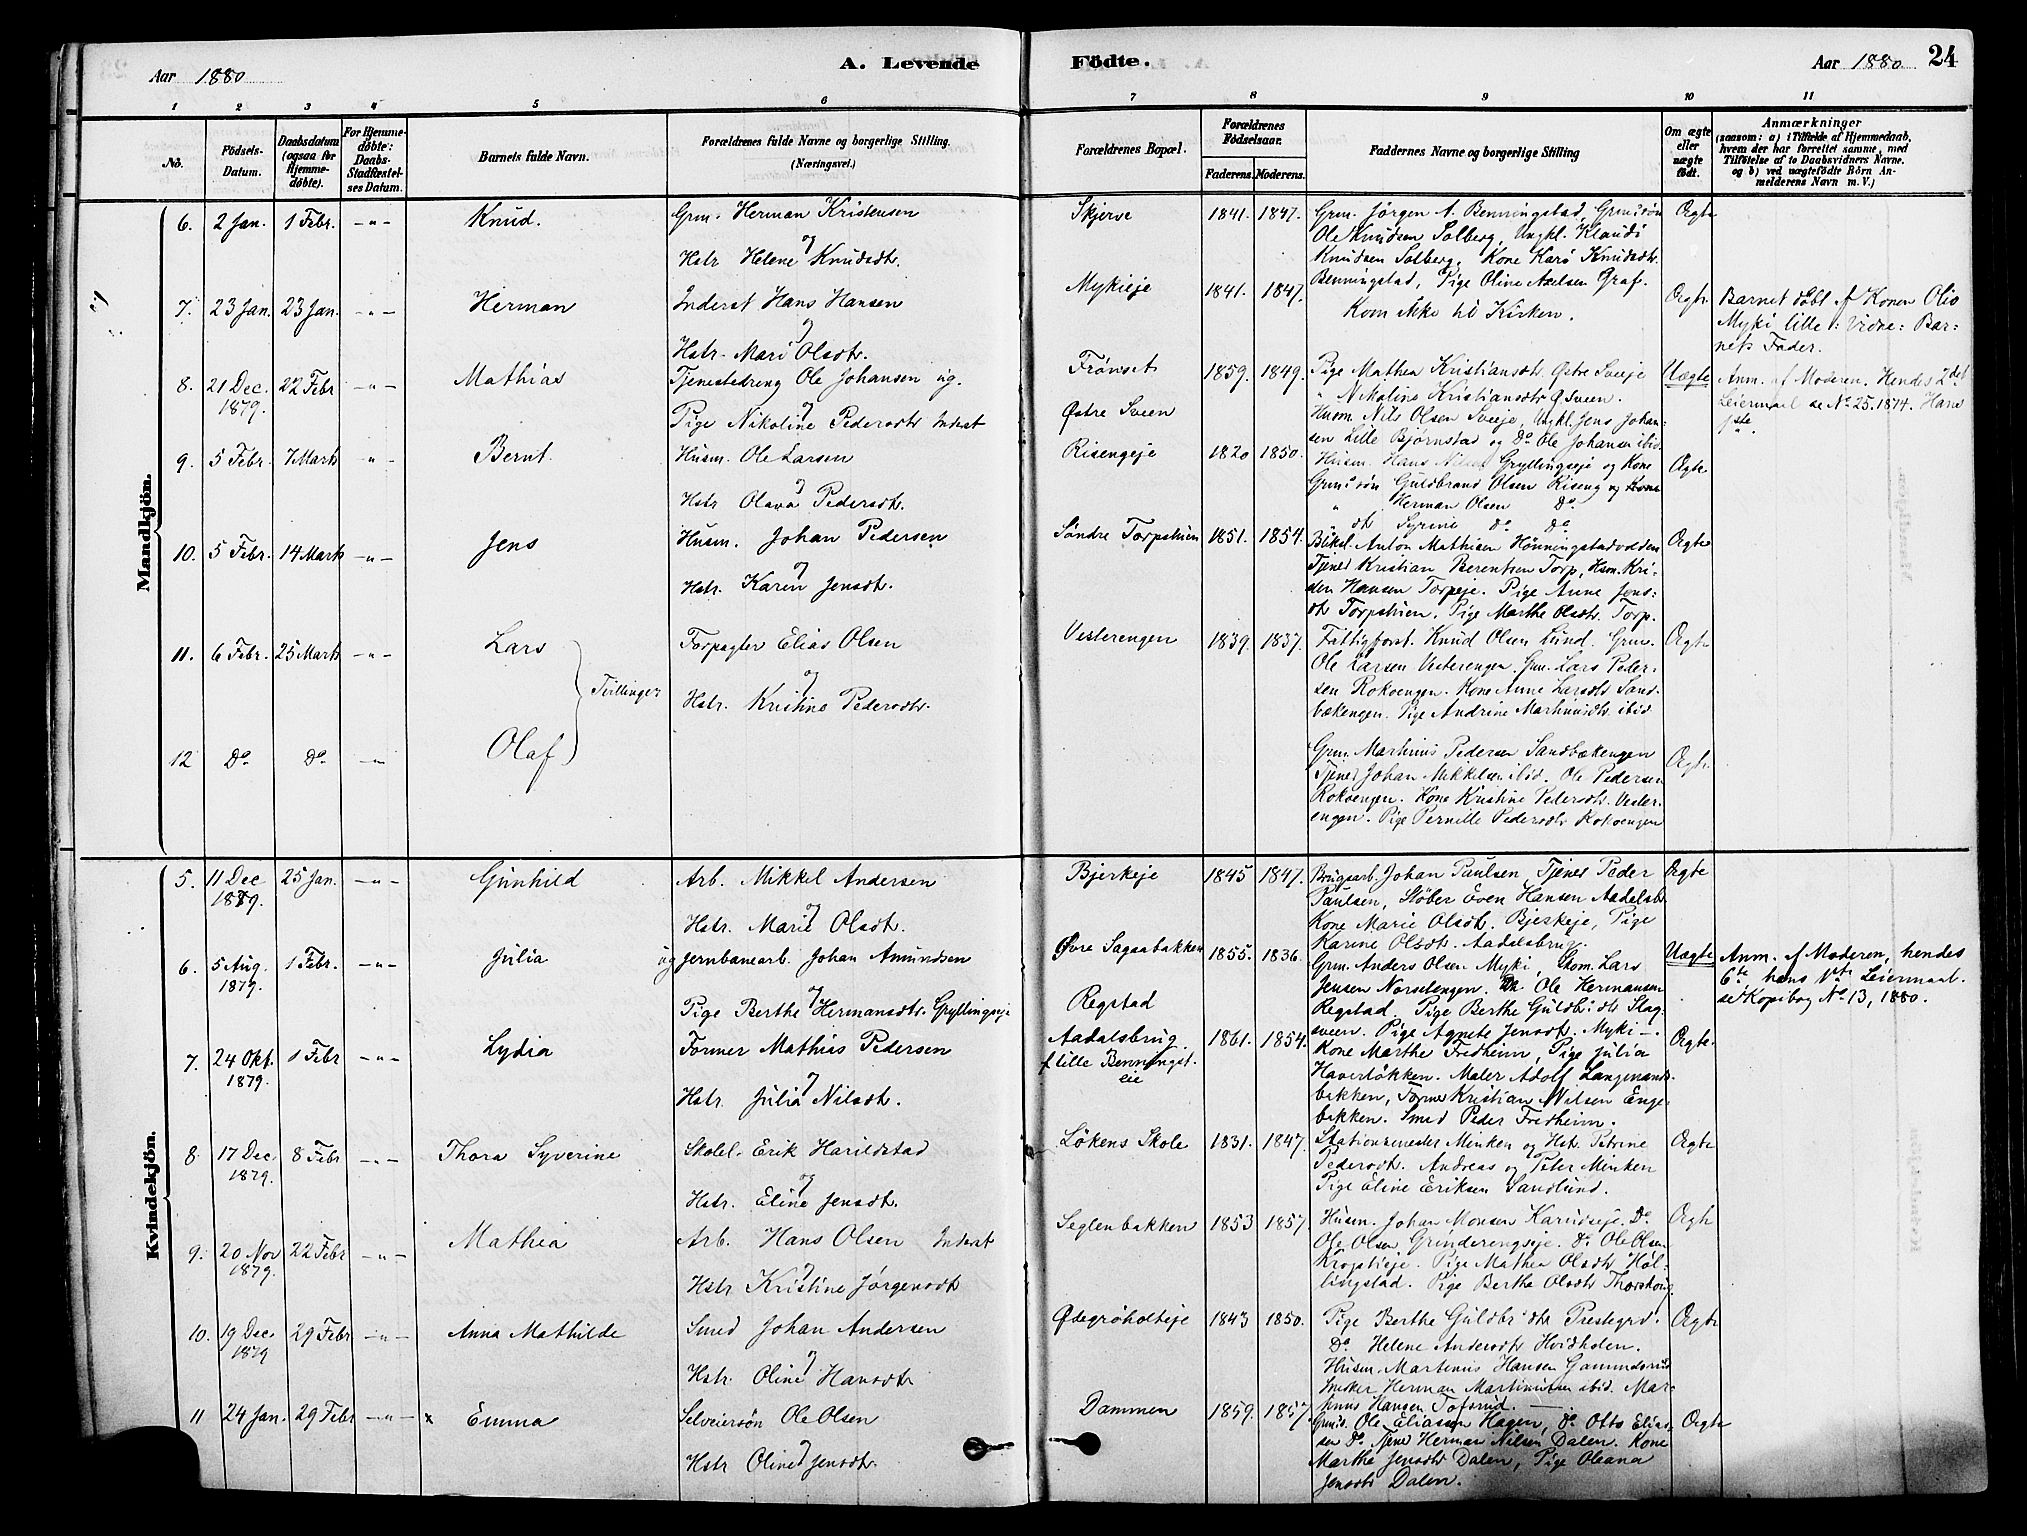 Aar 1880
A. Levende
Födte.
Aar 1880 24
1 2 3 4 5 6 7 8 9 10 11
No.
Födsels-Datum.
Daabsdatum (ogsaa for Hjemmedöbte).
For Hjemmedöbte: Daabs-Stadfæstelses Datum.
Barnets fulde Navn.
Forældrenes fulde Navne og borgerlige Stilling. (Næringsvei.)
Forældrenes Bopæl.
Forældrenes Födselsaar.
Faderens. Moderens.
Faddernes Navne og borgerlige Stilling
Om ægte eller uægte födt.
Anmærkninger
(saasom: a) i Tilfælde af Hjemmedaab, hvem der har forrettet samme, med Tilföielse af to Daabsvidners Navne, og b) ved uægtefödte Börn Anmelderens Navn m. V.)
Mandkjön.
6. 2 Jan. 1 Febr. -"- Knud. Grm. Herman Kristensen
og
Hstr Helene Knudsdtr.
Skjerve 1841. 1847. Grm. Jörgen A. Benningstad, Grms. sön
Ole Knudsen Solberg, Ungkl. Klaudi
Knudsen Solberg, Kone Kari Knudsdtr.
Benningstad, Pige Oline Axelsen Graf.
Ægte
7. 23 Jan. 23 Jan. -"- Herman Inderst Hans Hansen
og
Hstr. Mari Olsdtr.
Mykieje 1841. 1847. Kom ikke til Kirken. Ægte
Barnet döbt af Konen Olia
Myki lille: Vidne: Bar=
nets Fader.
8. 21 Dec. 1879. 22 Febr -"- Mathias Tjenestedreng Ole Johansen ug.
og
Pige Nikoline Pedersdtr Inderst
Frönset
Østre Sveen
1859. 1849. Pige Mathea Kristiansdtr. Østre Sveeje
" Nikoline Kristiansdtr Ø Sveen.
Husm. Nils Olsen Sveeje, Ungkl. Jens Johan=
sen Lille Bjørnstad og Do Ole Johansen ibid
Uægte
Anm. af Moderen. Hendes 2det
Leiermaal se No 25. 1874. Hans
1ste.
9. 5 Febr. 7 Marts " Bernt. Husm. Ole Larsen
og
Hstr Olava Pedersdtr.
Risengeje 1820 1850. Husm. Hans Nilsen Gryllingseje og Kone
Grms. sön Guldbrand Olsen Riseng og Kone
" " Herman Olsen Do
" dtr Syrine Do Do
Ægte
10. 5 Febr. 14 Marts -"- Jens Husm. Johan Pedersen
og
Hstr. Karen Jensdtr.
Söndre Torpstuen 1851. 1854. Bliksl. Anton Mathisen Hönningstadvolden
Tjener Kristian Berentsen Torp, Hsm. Kri=
sten Hansen Torpeje. Pige Anne Jens=
dtr Torpstuen. Pige Marthe Olsdtr. Torp.
Ægte
11. 6 Febr. 25 Marts -"- Lars Forpagter Elias Olsen
Tvillinger
og
Hstr. Kristine Pedersdtr.
Vesterengen 1839. 1837. Fattigforst. Knud Olsen Lund. Grm.
Ole Larsen Vesterengen. Grm. Lars Peder=
sen Rokoengen. Kone Anne Larsdtr Sand=
bækengen. Pige Andrine Martinusdtr. ibid
Ægte
12 Do Do -"- Olaf
Grm. Martinus Pedersen Sandbækengen
Tjener Johan Mikkelsen ibid. Ole Pedersen
Rokoengen. Kone Kristine Pedersdtr. Vester=
engen. Pige Pernille Pedersdtr Rokoengen
Ægte
Kvindekjön.
5. 11 Dec 1879. 25 Jan. -"- Gunhild Arb. Mikkel Andersen
og
Hstr. Marie Olsdtr.
Bjerkeje 1845 1847. Brugsarb. Johan Paulsen, Tjener Peder
Paulsen, Stöber Even Hansen Aadelsb.
Kone Marie Olsdtr. Bjerkeje, Pige
Karine Olsdtr. Aadalsbrug.
Ægte
6. 5 Aug. 1879. 1 Febr. -"- Julia ug Jernbanearb. Johan Amundsen
og
Pige Berthe Hermansdtr. Gryllingseje
Øvre Sagaabakken
Regstad
1855. 1836. Grm. Anders Olsen Myki, Gkom. Lars
Jensen Norsetengen. Do Ole Hermansen
Regstad. Pige Berthe Guldbr:dtr Slag=
sveen. Pige Agnete Jensdtr. Myki.
Uægte
Anm. af Moderen, hendes
6te, hans 1ste Leiermaal.
se Kopibog No 13, 1880.
7. 24 Okt. 1879. 1 Febr -"- Lydia Former Mathias Pedersen
og
Hstr. Julia Nilsdtr.
Aadalsbrug
f lille Benningst.
eie
1861. 1854. Kone Marthe Fredheim, Pige Julia
Haverlökken. Maler Adolf Langmands=
bakken, Former Kristian Nilsen Enge=
bakken. Smed Peder Fredheim.
Ægte
8. 17 Dec 1879. 8 Febr -"- Thora Syverine Skolel. Erik Harildstad
og
Hstr. Eline Jensdtr.
Lökens Skole 1831. 1847. Stationsmester Minken og Hstr. Petrine
Pedersdtr. Andreas og Peter Minken
Pige Eline Eriksen Sandlund.
Ægte
9. 20 Nov 1879. 22 Febr -"- Mathea Arb. Hans Olsen Inderst
og
Hstr Kristine Jørgensdtr
Seglenbakken 1853 1857. Husm. Johan Monsen Karudseje. Do
Ole Olsen Grinderengseje. Do Ole Olsen
Krogstieje. Pige Mathea Olsdtr Höl=
lingstad. Pige Berthe Olsdtr Thorskoug
Ægte
10. 19 Dec. 1879 29 Febr -"- Anna Mathilde Smed Johan Andersen
og
Hstr. Oline Hansdtr
Ødegröholteje 1843 1850. Pige Berthe Guldbr:dtr Prestegrd.
Do Helene Andersdtr Hvidholen.
Husm. Martinus Hansen Gammelsrud
Snekker Herman Martinusen ibid. Mar=
tinus Hansen Tofsrud.
Ægte
11 24 Jan. 29 Febr -"- x Emma Selveiersön Ole Olsen
og
Hstr Oline Jensdtr.
Dammen 1859. 1857 Grms. Ole Eliassen Hagen, Do. Otto Elias=
sen Do. Tjener Herman Nilsen Dalen. Kone
Marthe Jensdtr Dalen, Pige Oleana
Jensdtr Dalen.
Ægte